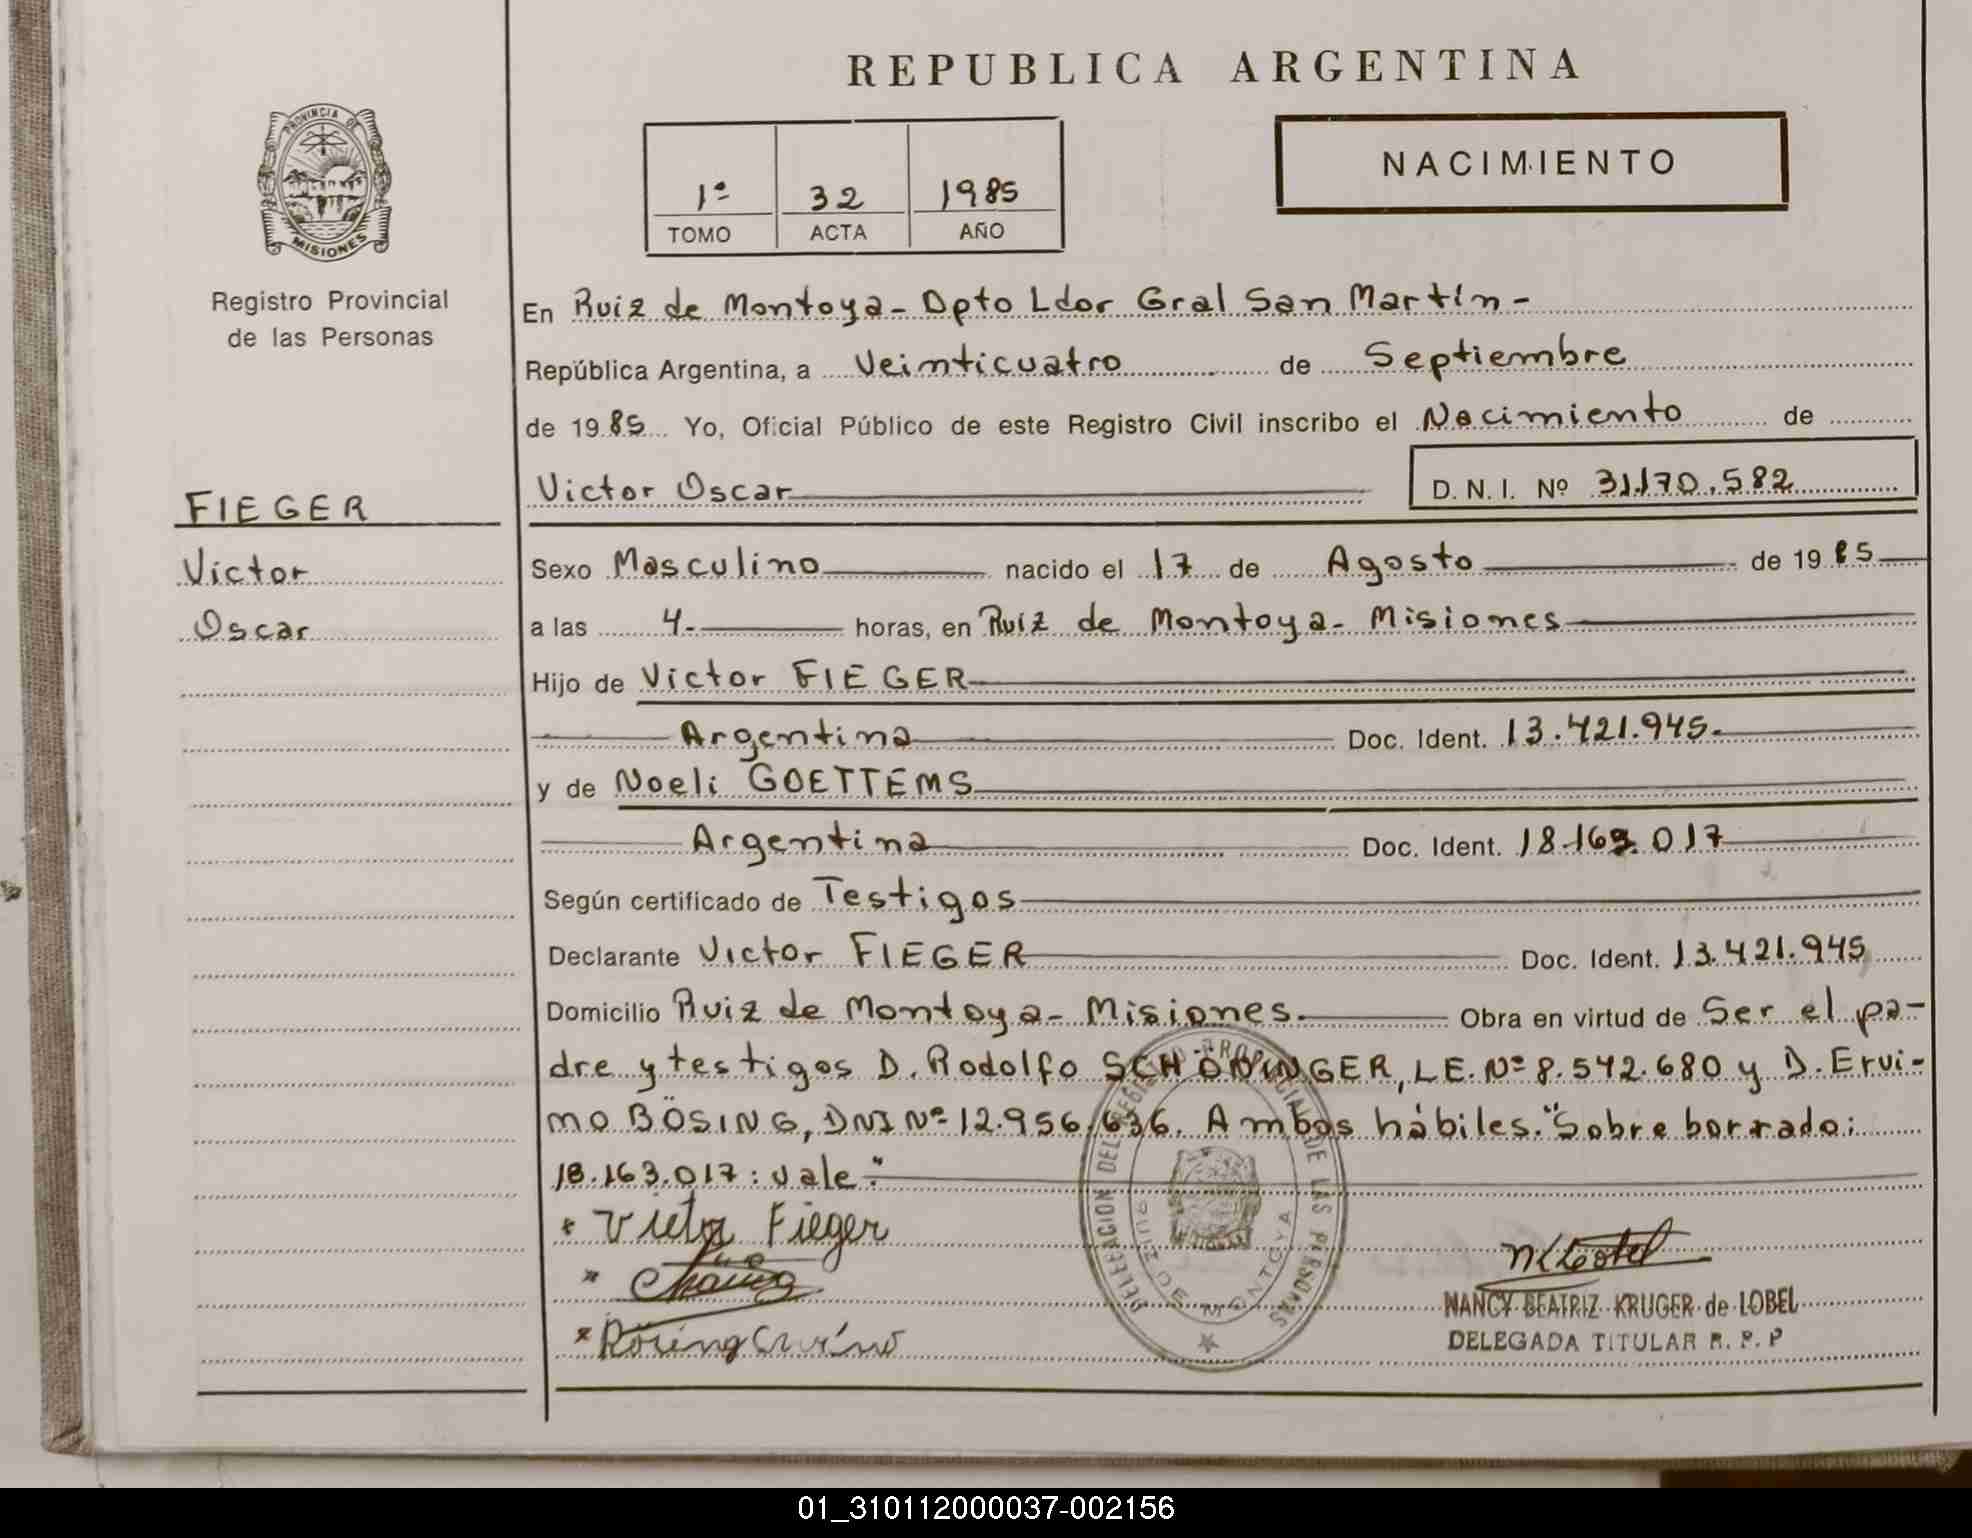 REPUBLICA ARGENTINA
PROVINCIA DE
MISIONES
Registro Provincial
de las Personas
1º 32 1985
TOMO ACTA AÑO
NACIMIENTO
En Ruiz de Montoya- Dpto Ldor Gral San Martín-
República Argentina, a Veinticuatro de Septiembre
de 1985 Yo, Oficial Público de este Registro Civil inscribo el Nacimiento de
Victor Oscar D. N. I. Nº 31.170.582
FIEGER
Victor
Oscar
Sexo Masculino nacido el 17 de Agosto de 1985
a las 4- horas, en Ruiz de Montoya- Misiones
Hijo de Victor FIEGER
Argentina Doc. Ident. 13.421.945.
y de Noeli GOETTEMS
Argentina Doc. Ident. 18.163.017
Según certificado de Testigos
Declarante Victor FIEGER Doc. Ident. 13.421.945
Domicilio Ruiz de Montoya- Misiones. Obra en virtud de Ser el pa-
dre y testigos D. Rodolfo SCHÖNINGER, LE. Nº 8.542.680 y D. Ervi-
no BÖSING, DNI Nº 12.956.636. Ambos hábiles. "Sobre borrado:
18.163.017: vale"
* Victor Fieger
*
* Bösing Ervino
DELEGACION DEL REGISTRO PROVINCIAL DE LAS PERSONAS
RUIZ DE MONTOYA
NANCY BEATRIZ KRUGER de LOBEL
DELEGADA TITULAR R. P. P
01_310112000037-002156